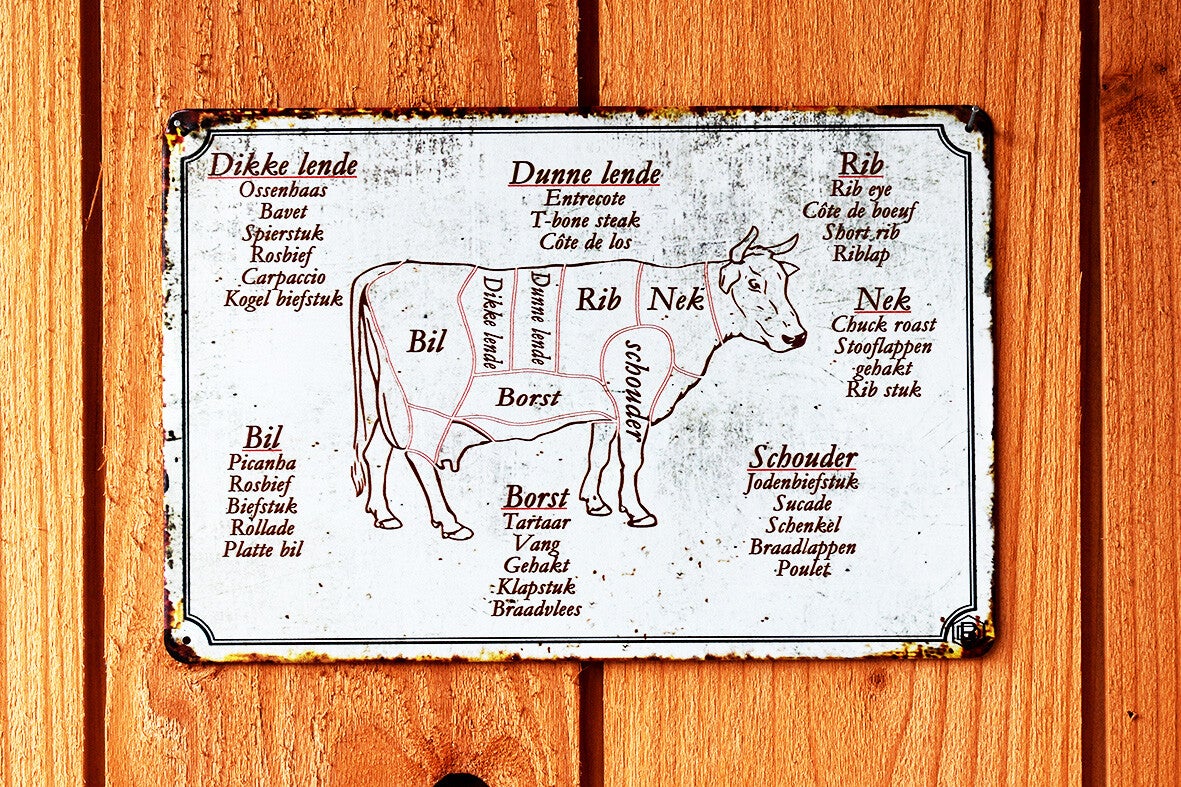 Dikke lende
Ossenhaas
Bavet
Spierstuk
Rosbief
Carpaccio
Kogel biefstuk
Dunne lende
Entrecote
T-bone steak
Côte de los
Rib
Rib eye
Côte de boeuf
Short rib
Riblap
Nek
Chuck roast
Stooflappen
gehakt
Rib stuk
Bil
Dikke lende
Dunne lende
Rib
Nek
schouder
Borst
Bil
Picanha
Rosbief
Biefstuk
Rollade
Platte bil
Borst
Tartaar
Vang
Gehakt
Klapstuk
Braadvlees
Schouder
Jodenbiefstuk
Sucade
Schenkel
Braadlappen
Poulet